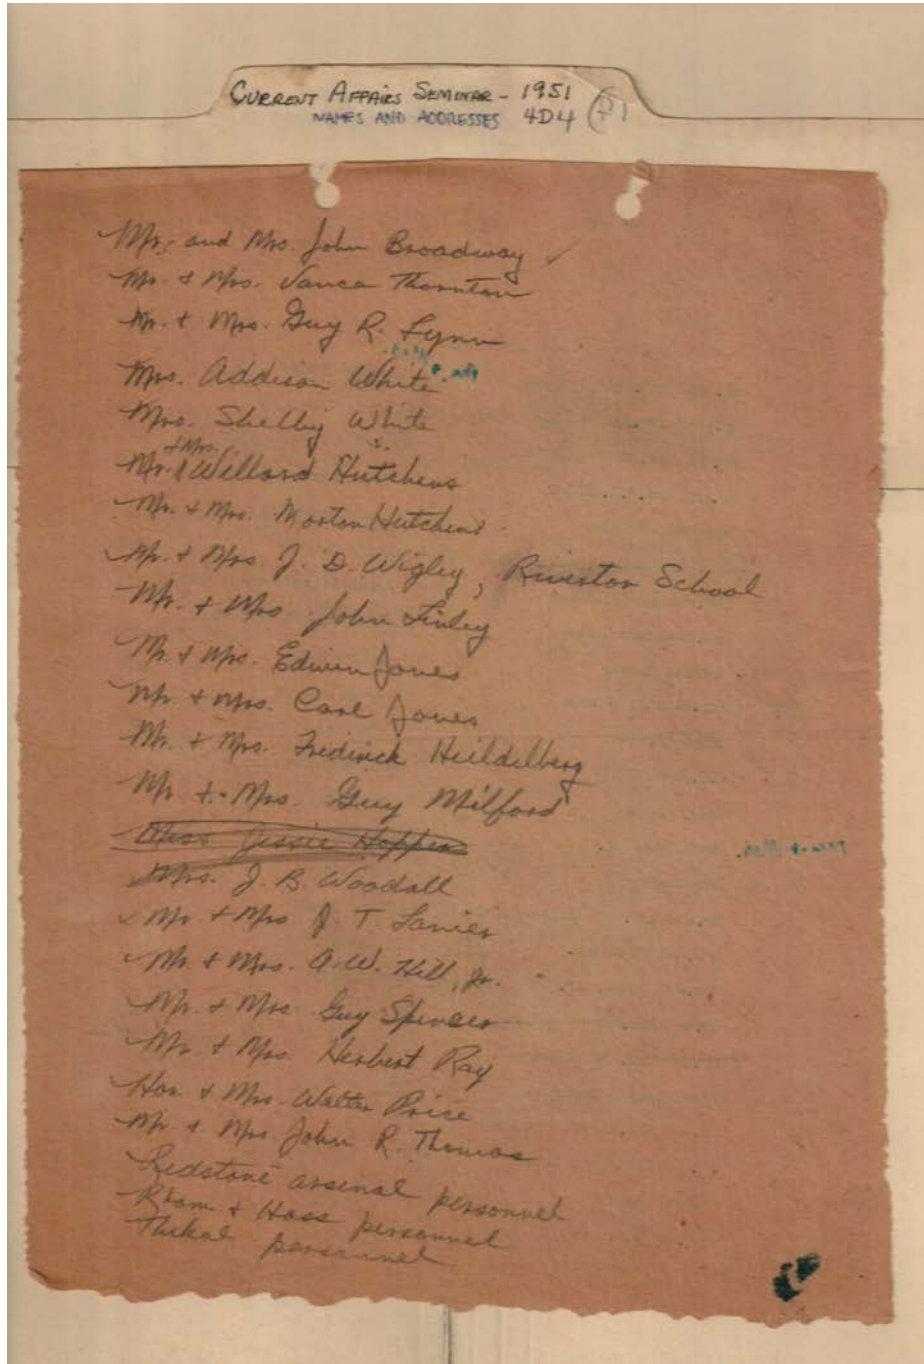 CURRENT AFFAIRS SEMINAR - 1951
NAMES AND ADDRESSES 4D4
Mr. and Mrs. John Broadway ✓
Mr. & Mrs. Vance Thornton
Mr. & Mrs. Guy R. Lynn
Mrs. Addison White
Mrs. Shelby White
& Mrs.
Mr. Willard Hutchens
Mr. & Mrs. Morton Hutchens
Mr. & Mrs. J. D. Wigley, Riverton School
Mr. & Mrs. John Finley
Mr. & Mrs. Edwin Jones
Mr. & Mrs. Carl Jones
Mr. & Mrs. Fredirick Heildelberg
Mr. & Mrs. Guy Milford
Miss Jessie Hopper
Mrs. J. B. Woodall
✓ Mr & Mrs J. T. Lanier
Mr. & Mrs. A. W. Hill, Jr.
Mr. & Mrs Guy Spencer
Mr. & Mrs. Herbert Ray
Hon. & Mrs. Walter Price
Mr. & Mrs. John R. Thomas
Redstone arsenal personnel
Rhom & Hass personnel
Thikol personnel